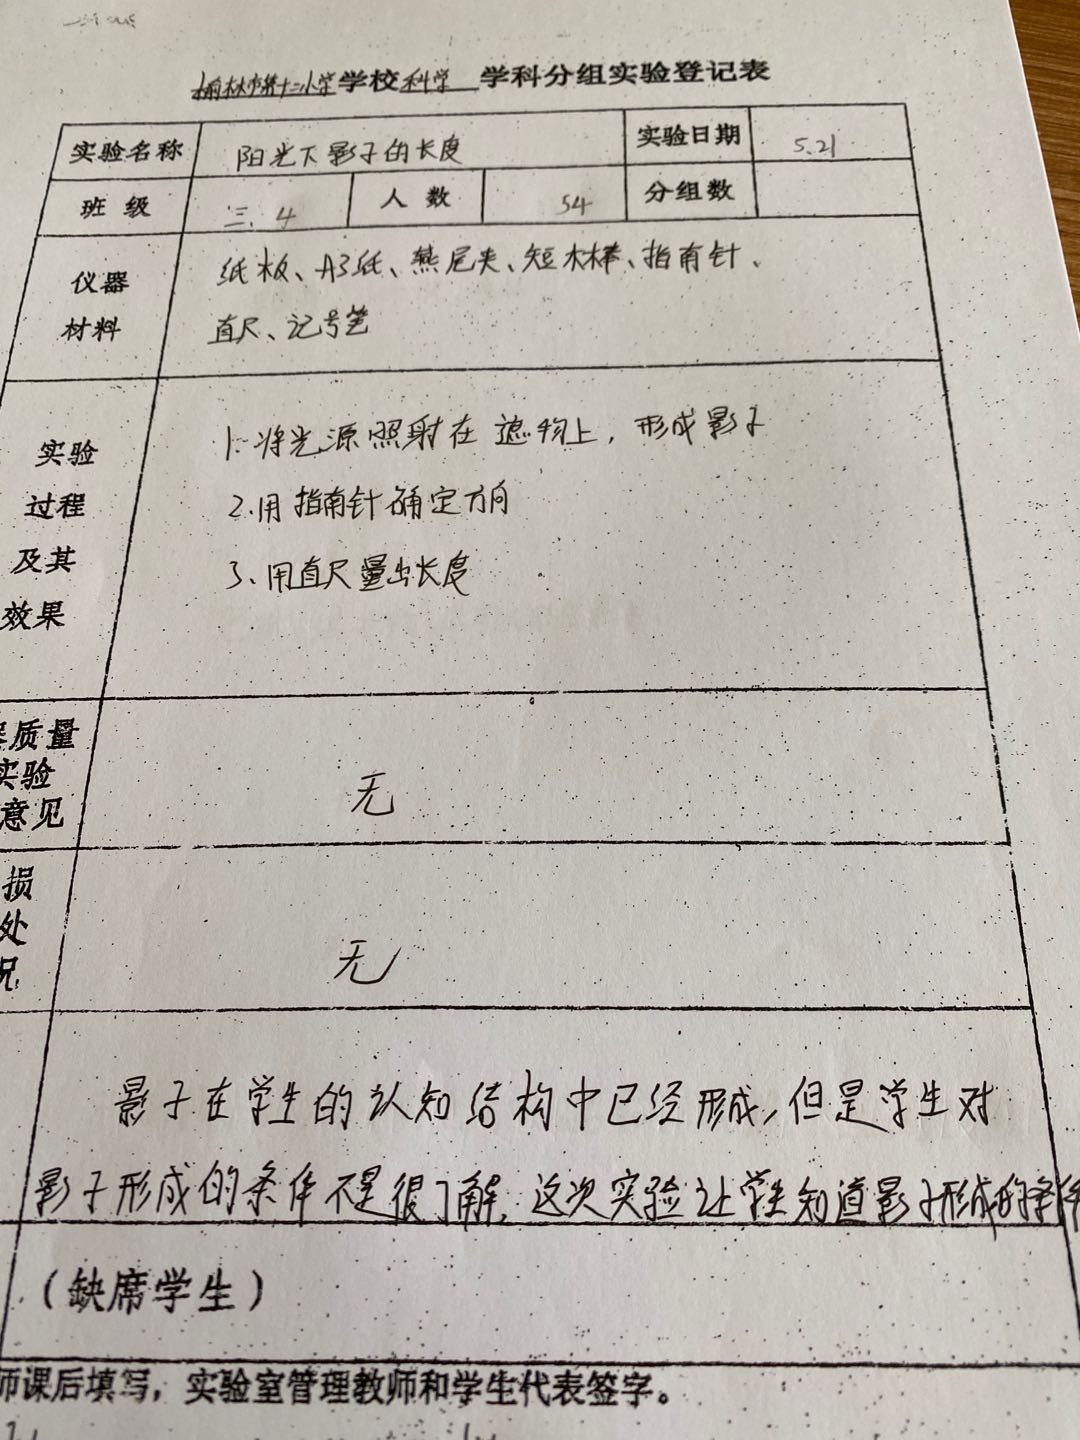 榆林市第十二小学学校科学 学科分组实验登记表
实验名称 阳光下影子的长度 实验日期 5.21
班 级 三.4 人 数 54 分组数
仪器
材料
纸板、A3纸、燕尾夹、短木棒、指南针、
直尺、记号笔
实验
过程
及其
效果
1.将光源照射在遮物上,形成影子
2.用指南针确定方向
3、用直尺量出长度
质量
实验
意见
无
损
处
况
无
影子在学生的认知结构中已经形成,但是学生对
影子形成的条件不是很了解,这次实验让学生知道影子形成的条件
(缺席学生)
师课后填写,实验室管理教师和学生代表签字。